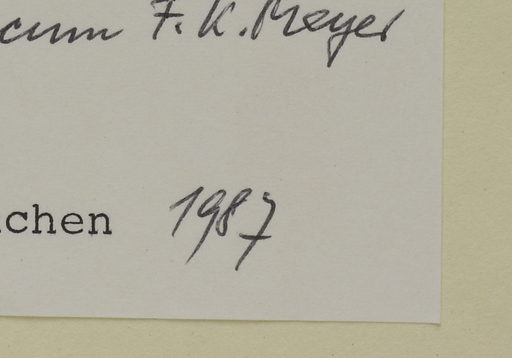 cum F. K. Meyer
chen 1987